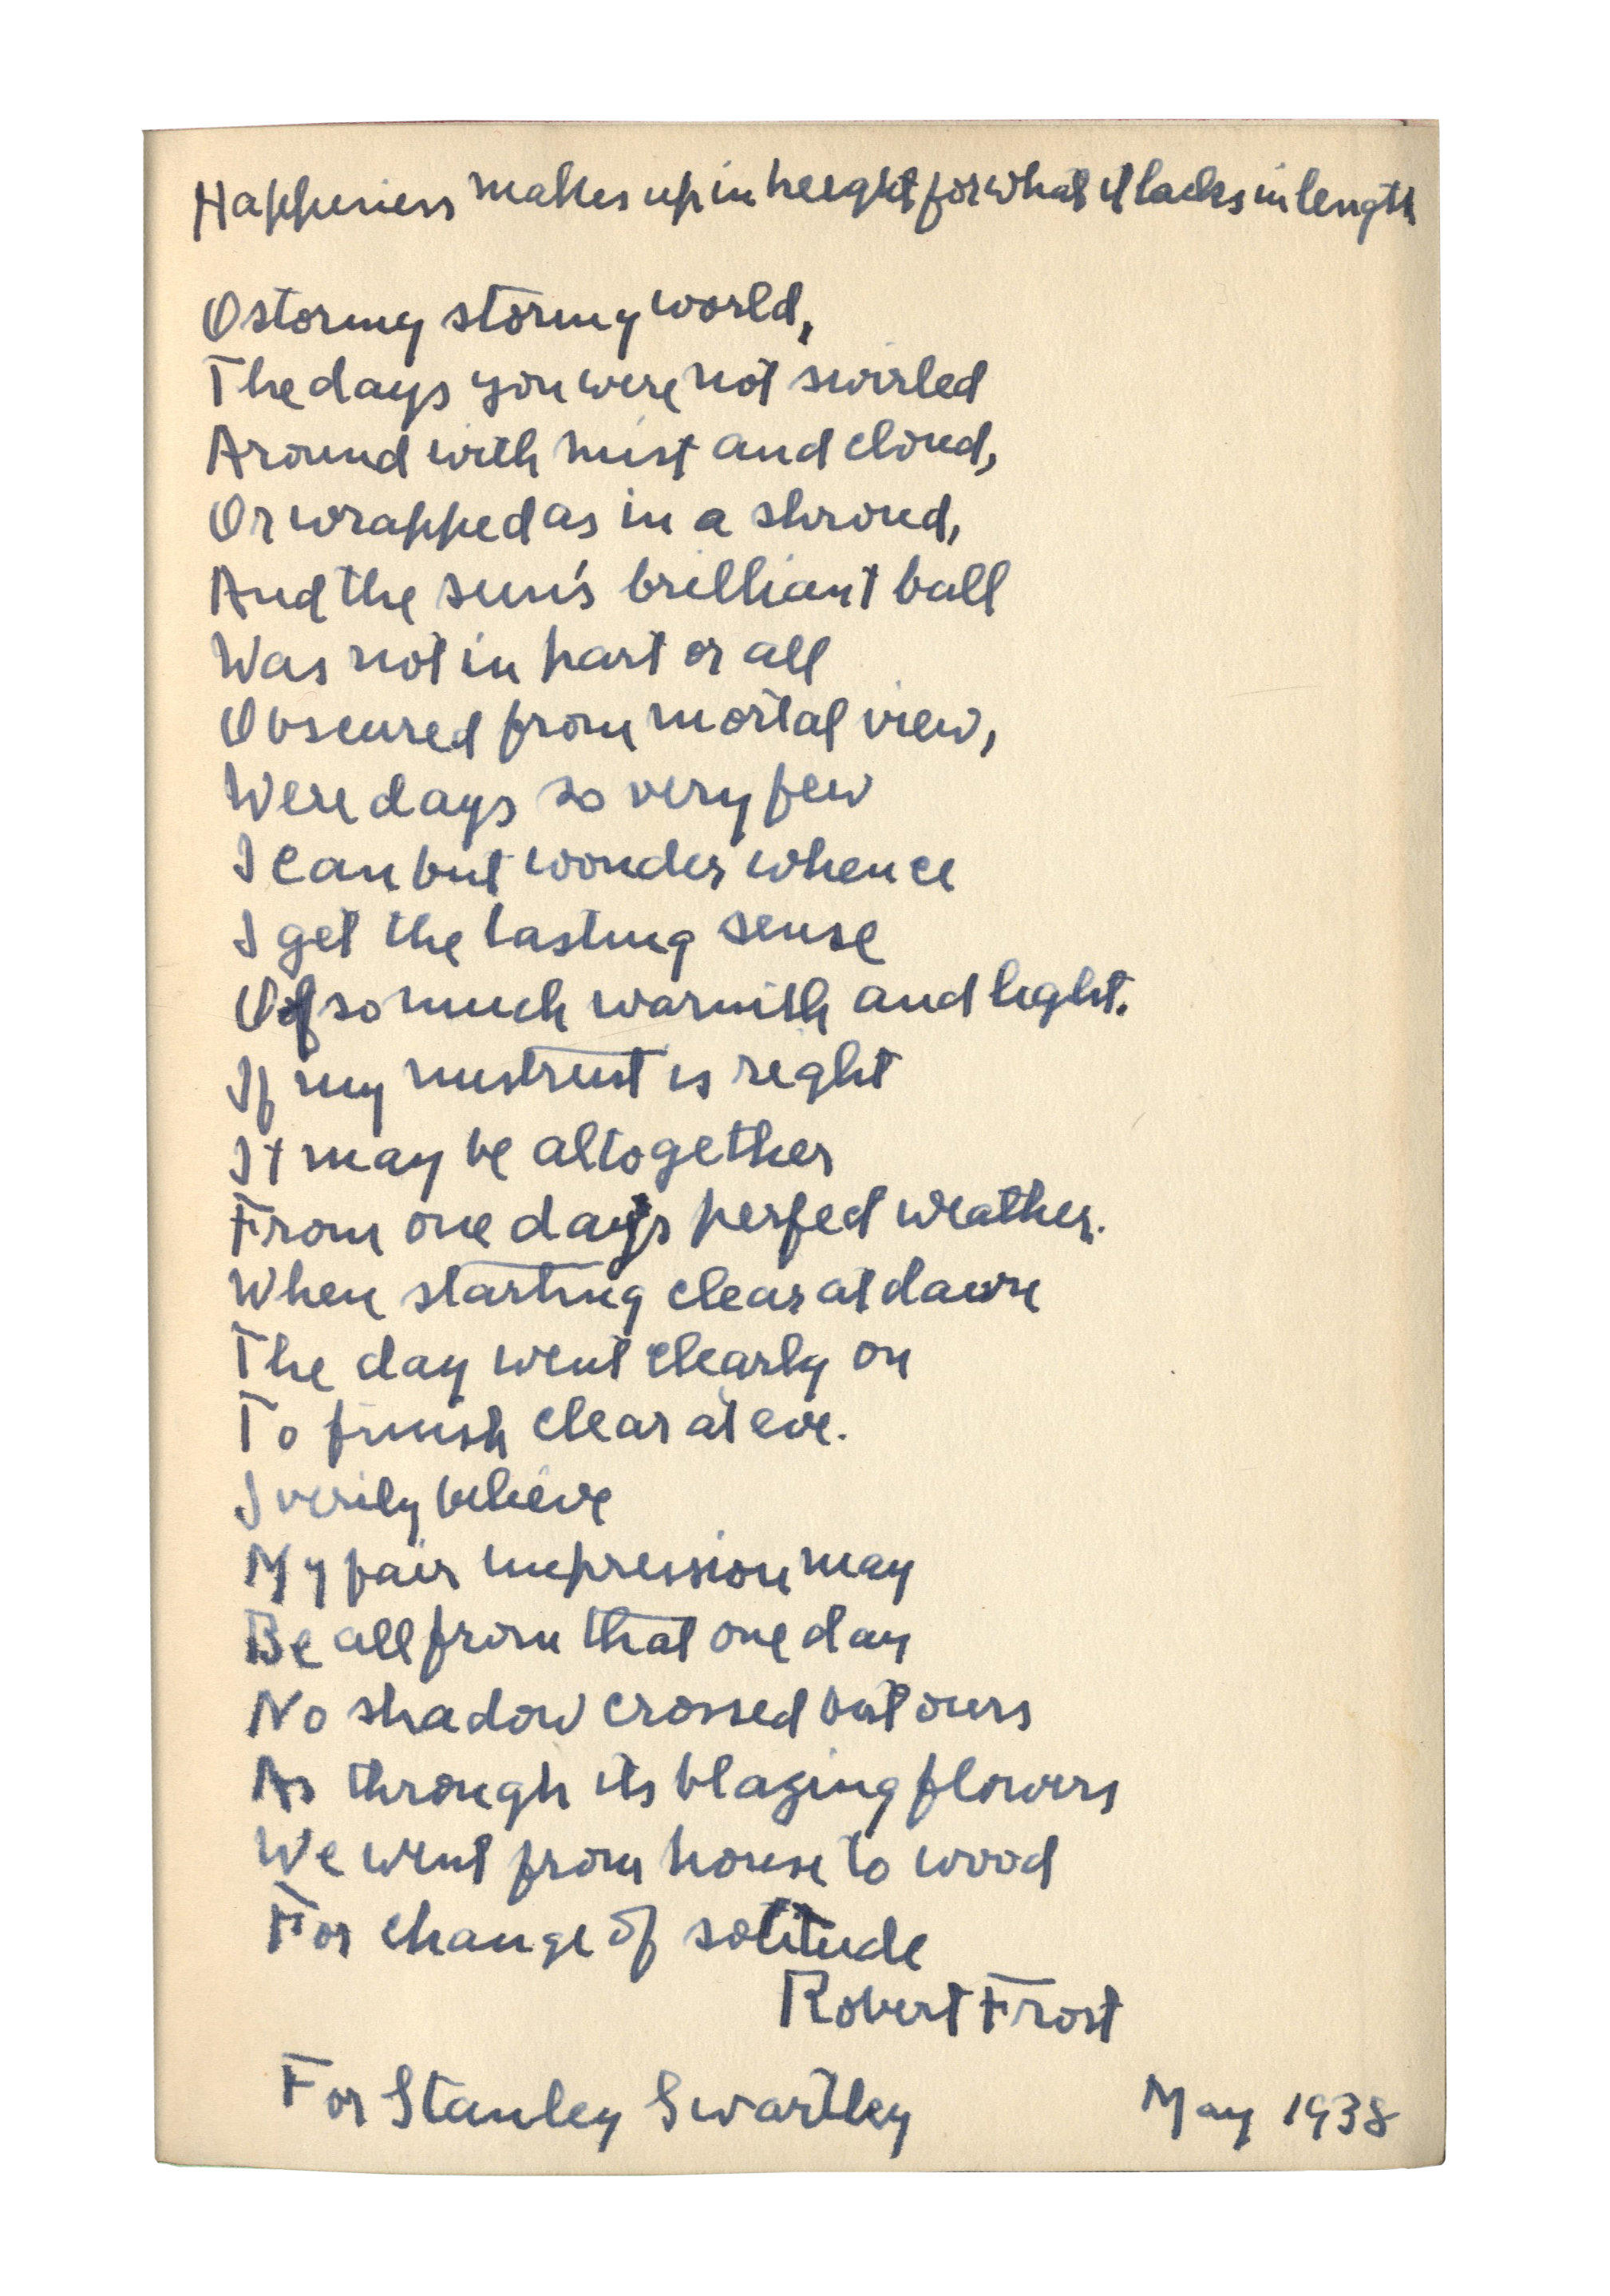 Happiness makes up in height for what it lacks in length
O stormy stormy world,
The days you were not swirled
Around with mist and cloud,
Or wrapped as in a shroud,
And the sun's brilliant ball
Was not in part or all
Obscured from mortal view,
Were days so very few
I can but wonder whence
I get the lasting sense
Of so much warmth and light.
If my mistrust is right
It may be altogether
From one day's perfect weather.
When starting clear at dawn
The day went clearly on
To finish clear at eve.
I verily believe
My fair impression may
Be all from that one day
No shadow crossed but ours
As through its blazing flowers
We went from house to wood
For change of solitude
Robert Frost
For Stanley Swartley May 1938